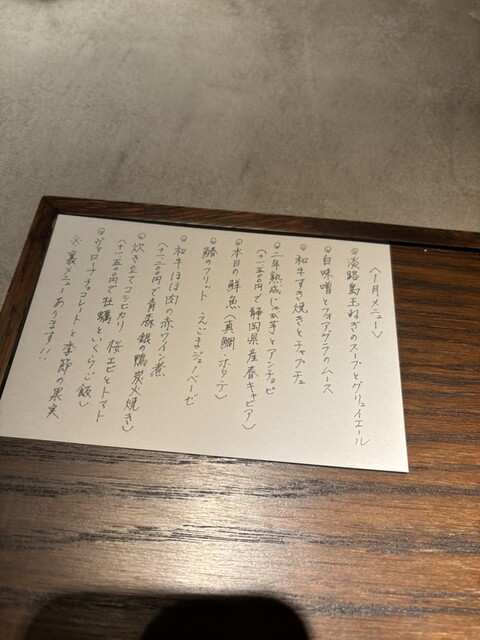 〈1月メニュー〉
◎淡路島玉ねぎのスープとグリュイエール
◎白味噌とフォアグラのムース
◎和牛すき焼きとチャプチェ
◎二年熟成じゃが芋とアンチョビ
(+一、五〇〇円で静岡県産春キャビア)
◎本日の鮮魚(真鯛・ホタテ)
◎鰆のフリット えごまジェノベーゼ
◎和牛ほほ肉の赤ワイン煮
(+一、二〇〇円で青森 銀の鴨炭火焼き)
◎炊き立てコシヒカリ 桜エビとトマト
(+一、五〇〇円で牡蠣・いくらご飯)
◎ヴァローナチョコレートと季節の果実
※裏メニューあります!!